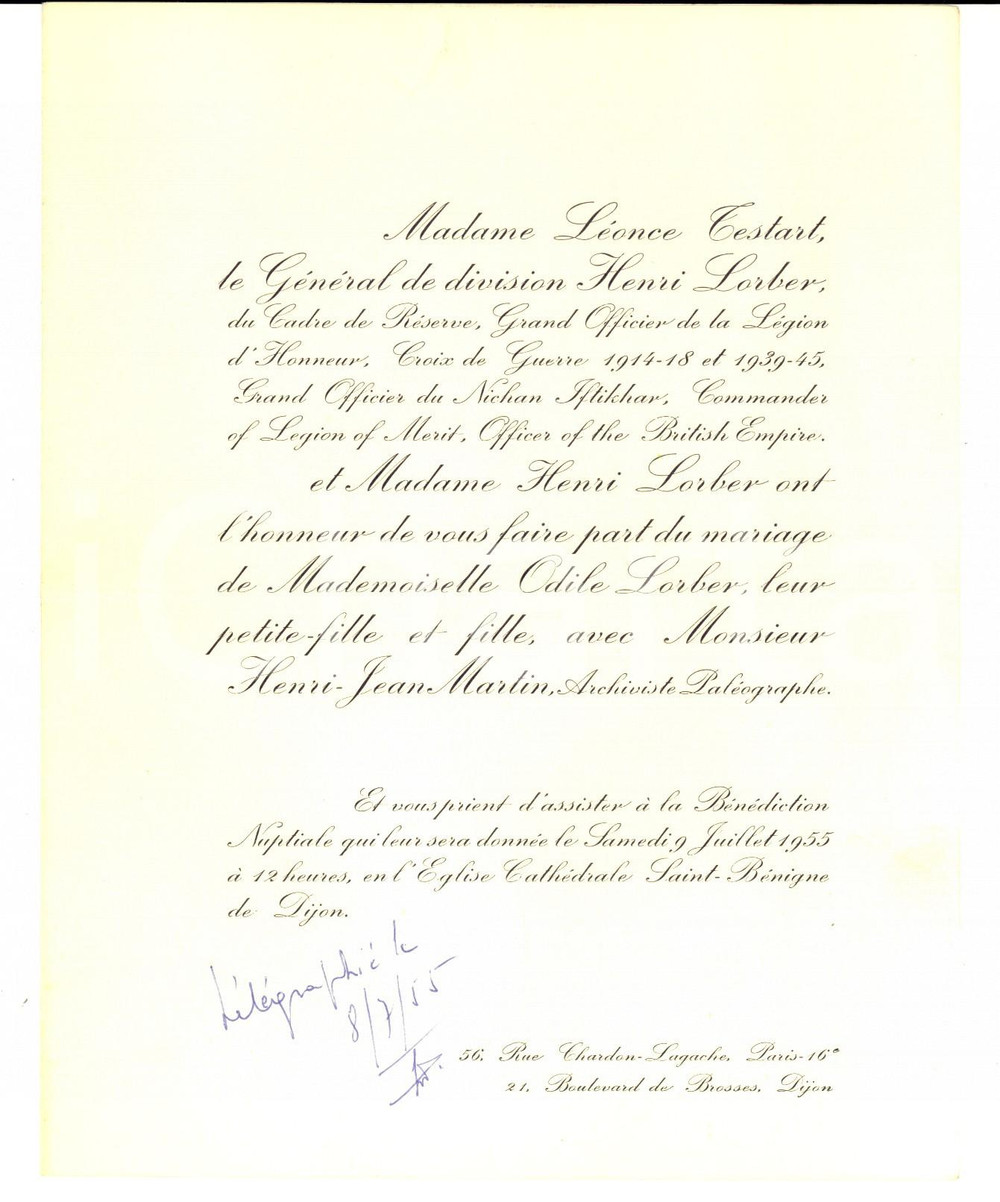 Madame Léonce Testart,
le Général de division Henri Lorber,
du Cadre de Réserve, Grand Officier de la Légion
d'Honneur, Croix de Guerre 1914-18 et 1939-45,
Grand Officier du Nichan Iftikhar, Commander
of Legion of Merit, Officer of the British Empire.
et Madame Henri Lorber ont
l'honneur de vous faire part du mariage
de Mademoiselle Odile Lorber, leur
petite-fille et fille, avec Monsieur
Henri-Jean Martin, Archiviste Paléographe.
Et vous prient d'assister à la Bénédiction
Nuptiale qui leur sera donnée le Samedi 9 Juillet 1955
à 12 heures, en l'Eglise Cathédrale Saint-Bénigne
de Dijon.
télégraphié le
8/7/55
56, Rue Chardon-Lagache, Paris-16e
21, Boulevard de Brosses, Dijon